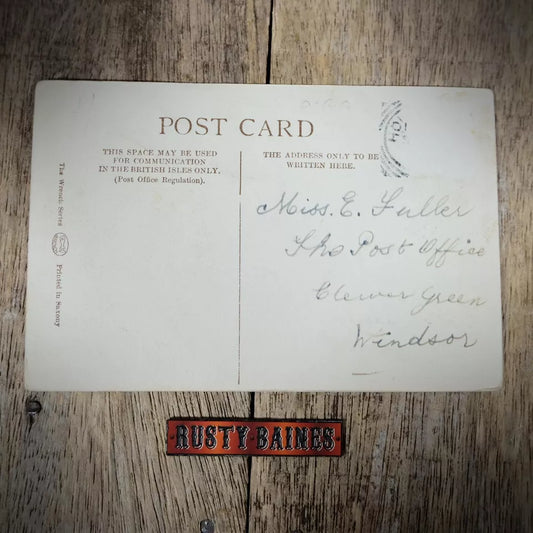 POST CARD
THIS SPACE MAY BE USED
FOR COMMUNICATION
IN THE BRITISH ISLES ONLY.
(Post Office Regulation).
THE ADDRESS ONLY TO BE
WRITTEN HERE.
The Wrench Series
Printed in Saxony
04
Miss. E. Fuller
The Post Office
Clewer Green
Windsor
RUSTY BAINES